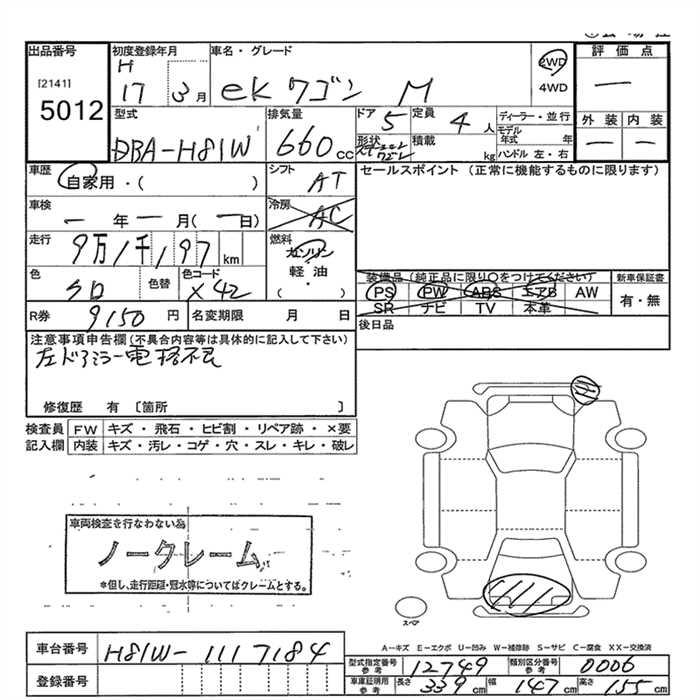 出品番号 初度登録年月 車名・グレード 2WD 4WD 評価点
[2141] 5012
H 17 3月 ekワゴン M
型式 DBA-H81W 排気量 660cc ドア 5 定員 4人 ディーラー・並行
形状 積載 kg モデル年式 年 ハンドル 左・右
外装 内装
車歴 自家用・( ) シフト AT
セールスポイント (正常に機能するものに限ります)
車検 一年一月(一日) 冷房 AC
走行 9万1千197km 燃料 ガソリン 軽油・( )
色 クロ 色替 色コード X42
装備品(純正品に限り○をつけてください) 新車保証書
PS PW ABS エアB AW 有・無
SR ナビ TV 本革
R券 9150円 名変期限 月 日
後日品
注意事項申告欄(不具合内容等は具体的に記入して下さい)
左ドアミラー電格不良
修復歴 有 〔箇所 〕
検査員 FW キズ・飛石・ヒビ割・リペア跡・×要
記入欄 内装 キズ・汚レ・コゲ・穴・スレ・キレ・破レ
車両検査を行なわない為
ノークレーム
*但し、走行距離・冠水等についてはクレームとする。
スペア
A-キズ E-エクボ U-凹み W-補修跡 S-サビ C-腐食 XX-交換済
車台番号 H81W-1117184
型式指定番号 参考 12749 類別区分番号 参考 0006
登録番号
車庫証明用 参考 長さ 339cm 幅 147cm 高さ 155cm